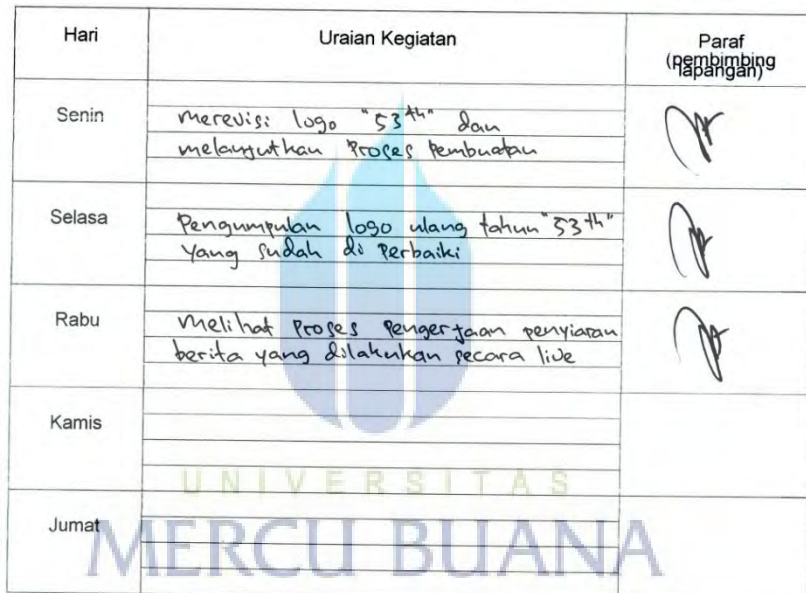 Hari Uraian Kegiatan Paraf
(pembimbing
lapangan)
Senin
merevisi logo "53th" dan
melanjutkan proses pembuatan
Selasa
Pengumpulan logo ulang tahun "53th"
yang sudah di Perbaiki
Rabu
Melihat proses pengerjaan penyiaran
berita yang dilakukan secara live
Kamis
UNIVERSITAS
Jumat
MERCU BUANA